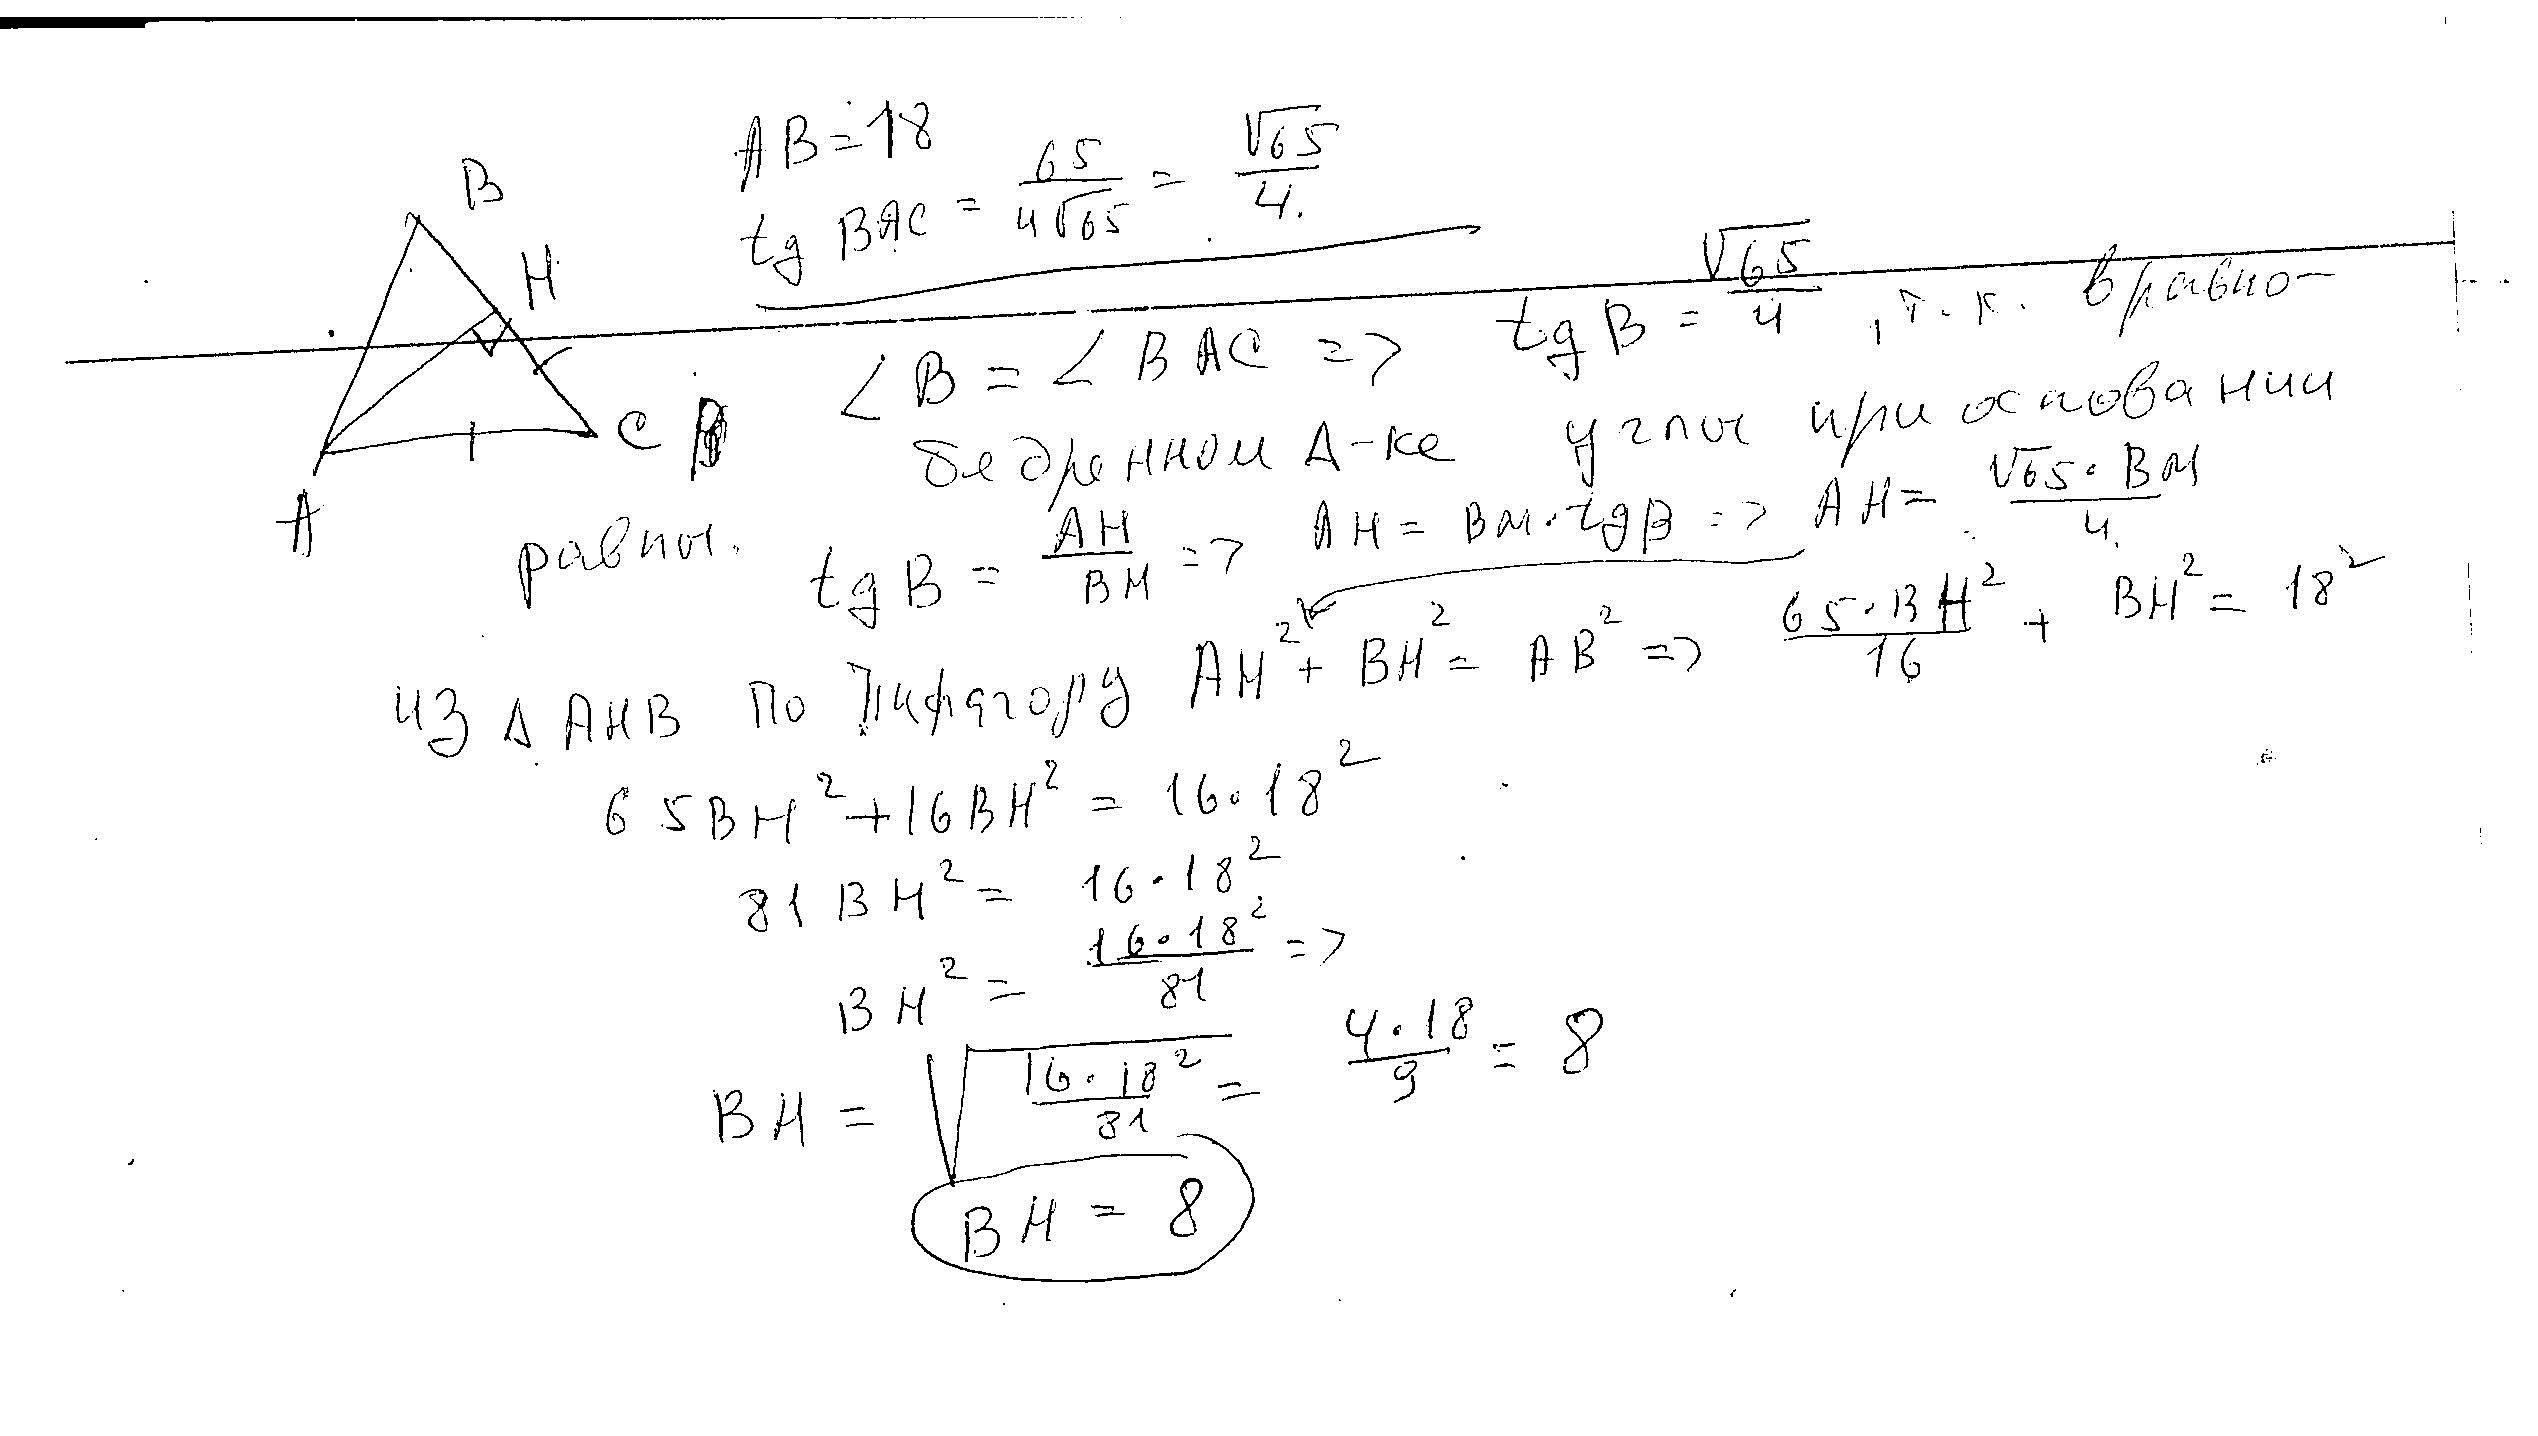 AB = 18
tg BAC = 65/4√65 = √65/4.
B
H
C
A
∠B = ∠BAC => tg B = √65/4, т.к. в равно-
бедренном Δ-ке углы при основании
равны.
tg B = AH/BH => AH = BH·tg B => AH = √65·BH/4.
из Δ AHB по Пифагору AH² + BH² = AB² => 65·BH²/16 + BH² = 18²
65BH² + 16BH² = 16·18²
81BH² = 16·18²
BH² = 16·18²/81 =>
BH = √(16·18²/81) = 4·18/9 = 8
BH = 8